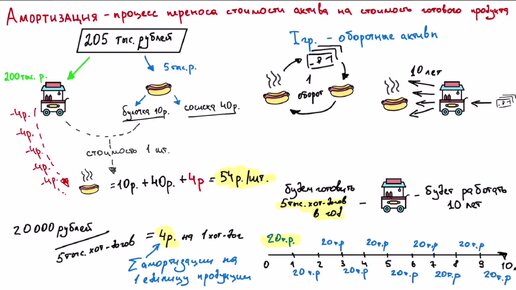 Амортизация - процесс переноса стоимости актива на стоимость готового продукта
205 тыс. рублей
I гр. - оборотные активы
200 тыс. р.
5 тыс. р.
10 лет
1
оборот
-4р.
-4р.
-4р.
-4р.
-4р.
булочка 10р.
сосиска 40р.
стоимость 1 шт.
=10р.+40р.+4р = 54р./шт.
будем готовить
5 тыс. хот-догов
в год
- будет работать
10 лет
20 000 рублей
5 тыс. хот-догов
= 4р. на 1 хот-дог
Σ амортизации на
1 единицу продукции
20т.р.
20т.р
20т.р
20т.р
20т.р
20т.р
20т.р
20т.р
20т.р
20т.р
0 1 2 3 4 5 6 7 8 9 10